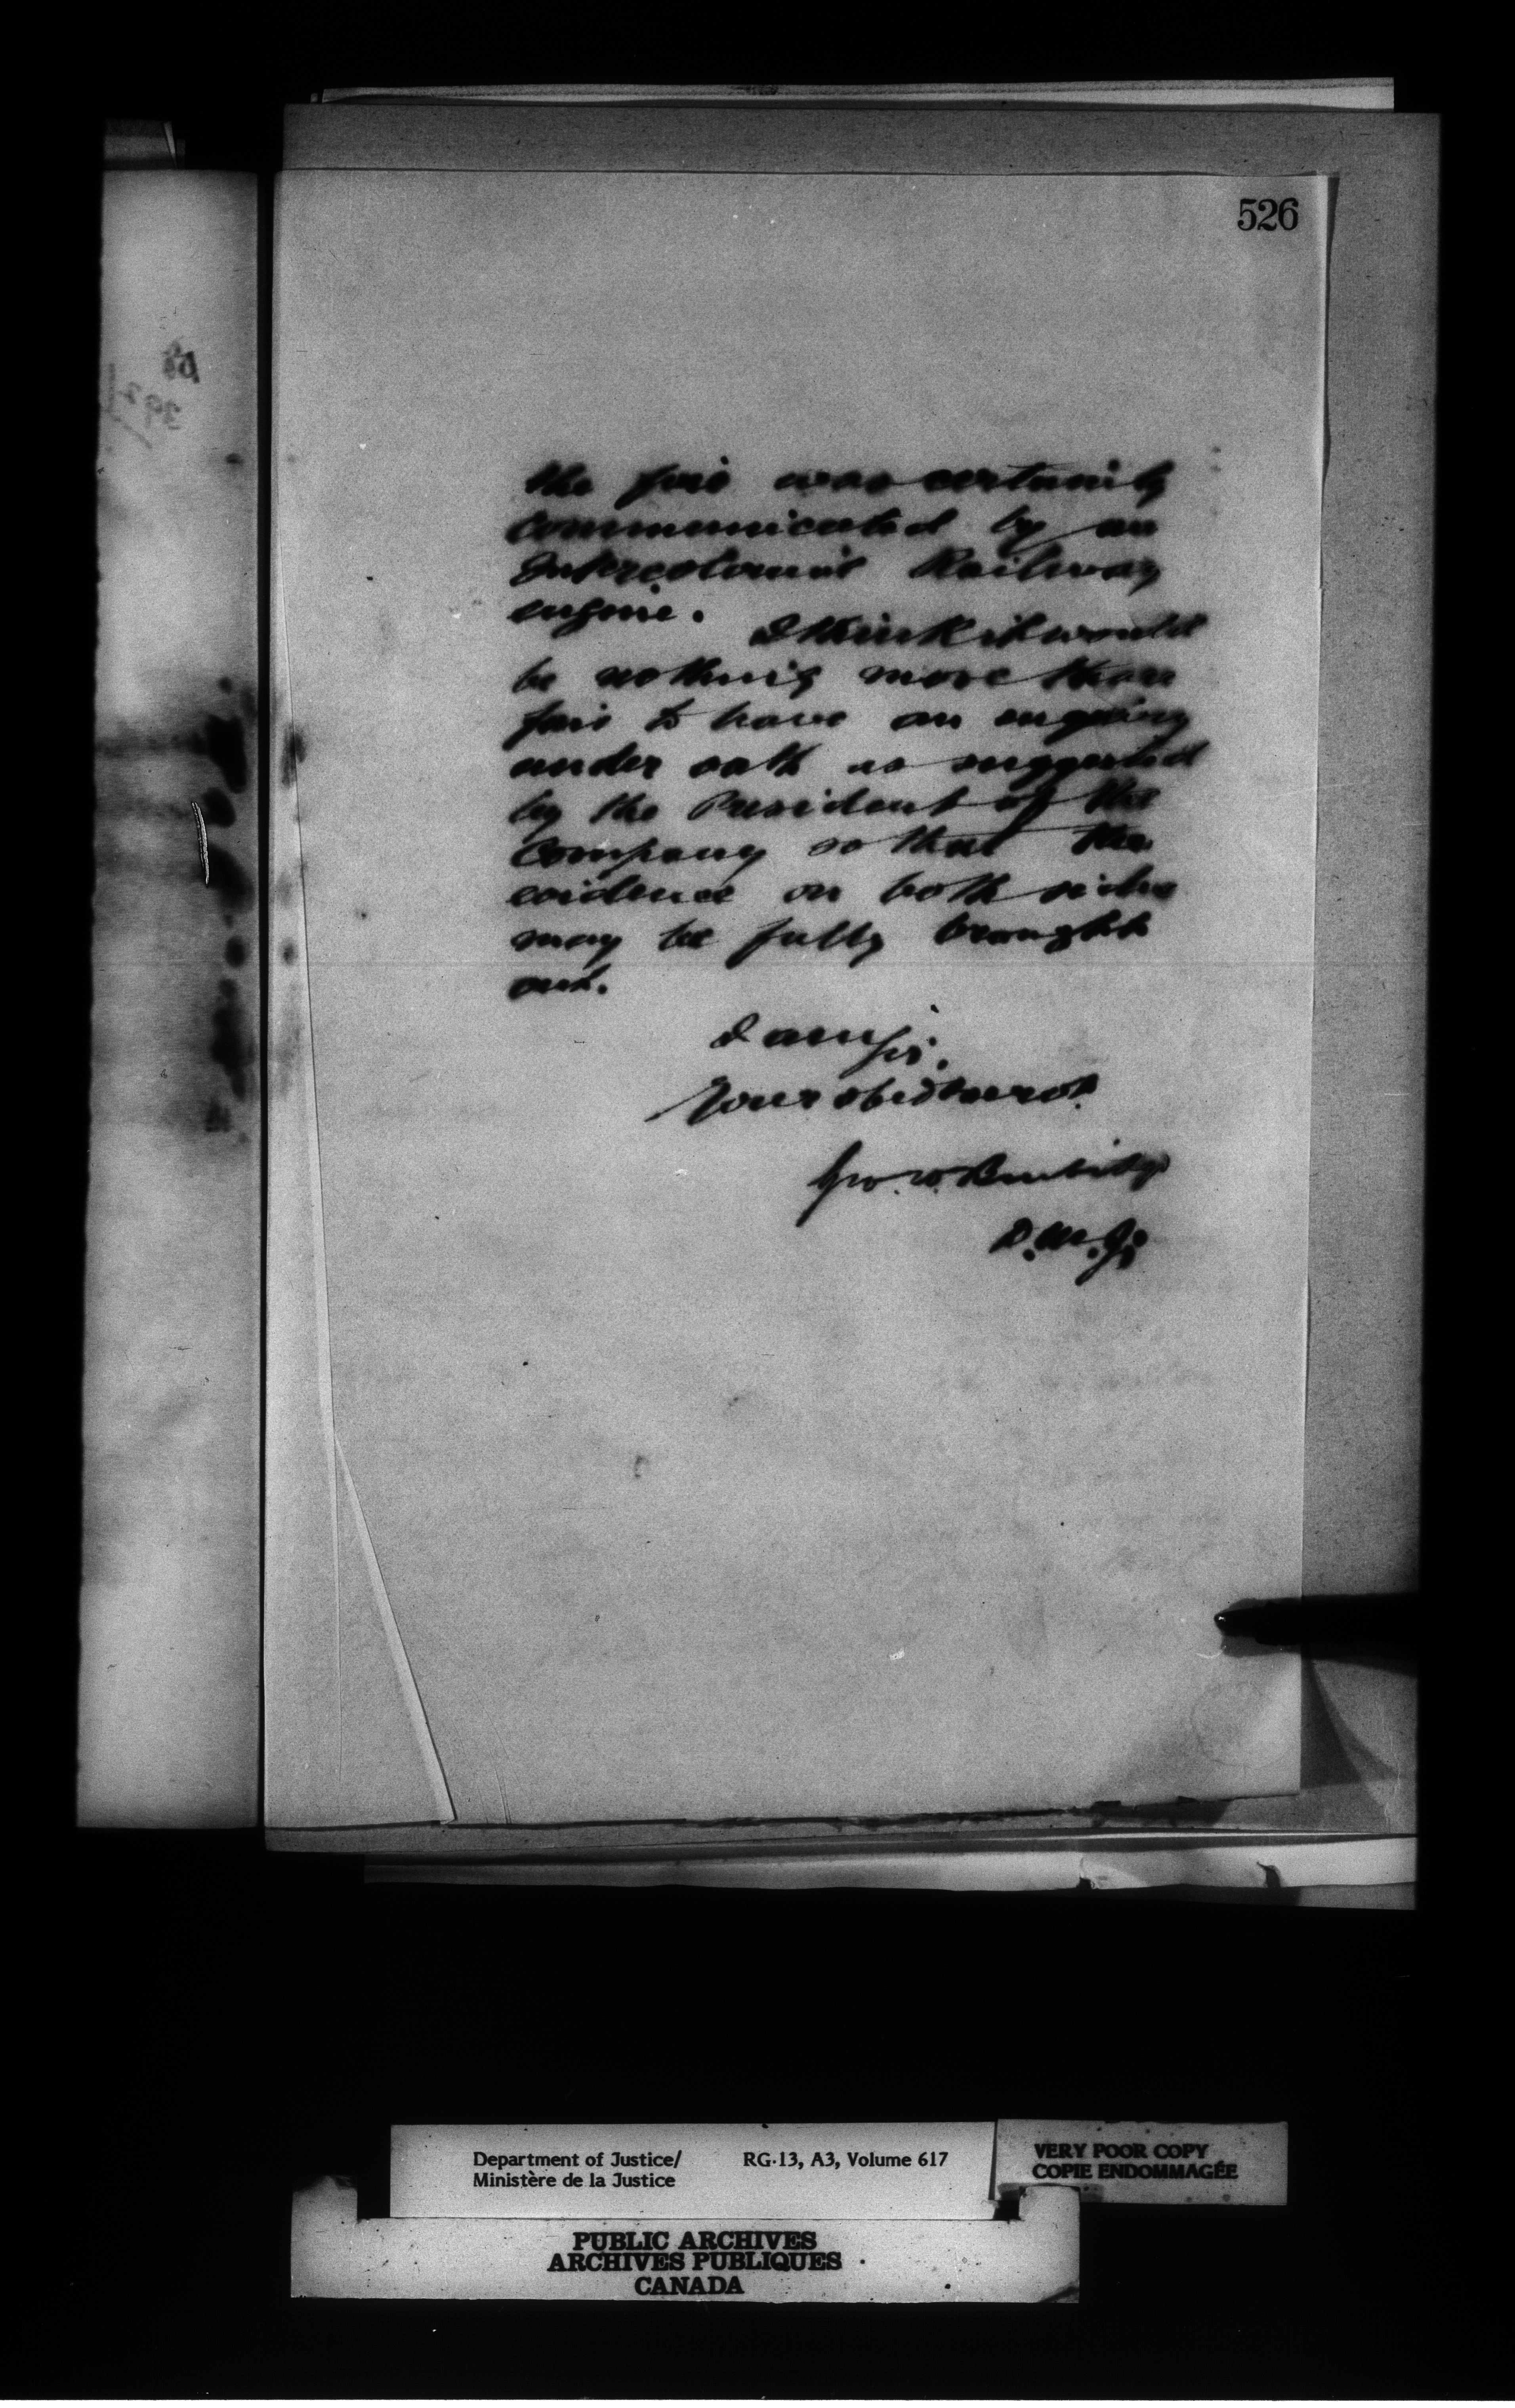 526
the fire was certainly
communicated by an
Intercolonial Railway
engine.
I think it would
be nothing more than
fair to have an enquiry
under oath as suggested
by the President of the
Company so that the
evidence on both sides
may be fully brought
out.
I am Sir,
Your obedt servt
Geo. W. Burbidge
D.M.J.
Department of Justice/ RG-13, A3, Volume 617
Ministère de la Justice
VERY POOR COPY
COPIE ENDOMMAGÉE
PUBLIC ARCHIVES
ARCHIVES PUBLIQUES
CANADA